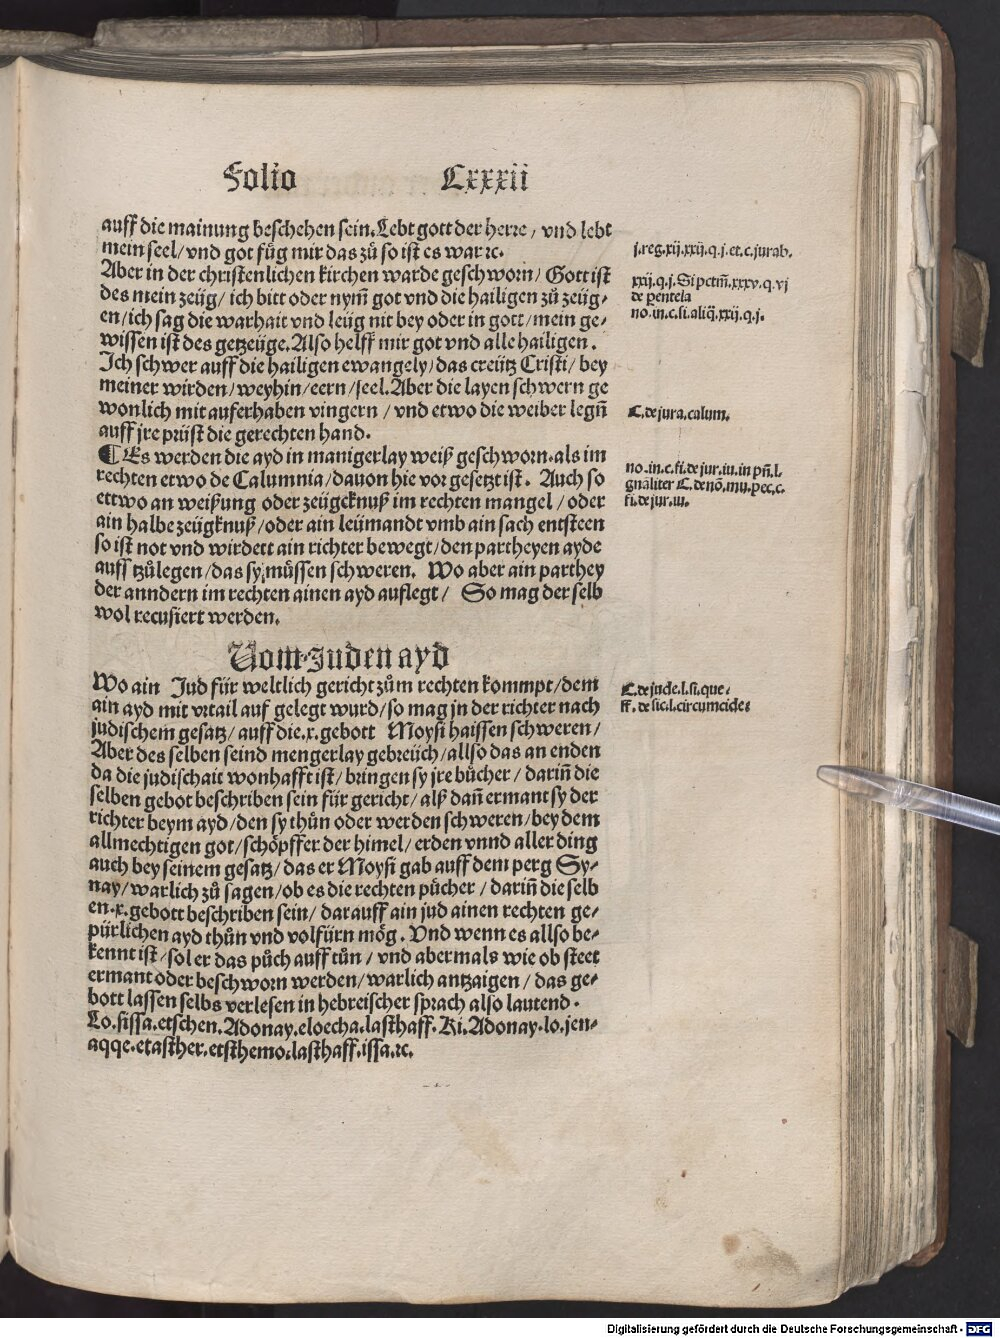 Folio Cxxxii
auff die mainung beschehen sein. Lebt gott der herre / vnd lebt
mein seel / vnd got füg mir das zů so ist es war ⁊c.
Aber in der christenlichen kirchen warde geschworn / Gott ist
des mein zeüg / ich bitt oder nym̃ got vnd die hailigen zů zeüg⸗
en / ich sag die warhait vnd leüg nit bey oder in gott / mein ge⸗
wissen ist des getzeüge. Also helff mir got vnd alle hailigen.
Ich schwer auff die hailigen ewangely / das creütz Cristi / bey
meiner wirden / weyhin / eern / seel. Aber die layen schwern ge
wonlich mit auferhaben vingern / vnd etwo die weiber legñ
auff jre prüst die gerechten hand.
¶ Es werden die ayd in manigerlay weiß geschworn. als im
rechten etwo de Calumnia / dauon hie vor gesetzt ist. Auch so
ettwo an weißung oder zeügcknuß im rechten mangel / oder
ain halbe zeügknuß / oder ain leümandt vmb ain sach entsteen
so ist not vnd wirdett ain richter bewegt / den partheyen ayde
auff tzůlegen / das sy müssen schweren. Wo aber ain parthey
der anndern im rechten ainen ayd auflegt / So mag der selb
wol recusiert werden.
Vom Juden ayd
Wo ain Jud für weltlich gericht zům rechten kommpt / dem
ain ayd mit vrtail auf gelegt wurd / so mag jn der richter nach
judischem gesatz / auff die .x. gebott Moysi haissen schweren /
Aber des selben seind mengerlay gebreüch / allso das an enden
da die judischait wonhafft ist / bringen sy jre bůcher / dariñ die
selben gebot beschriben sein für gericht / alß dañ ermant sy der
richter beym ayd / den sy thůn oder werden schweren / bey dem
allmechtigen got / schöpffer der himel / erden vnnd aller ding
auch bey seinem gesatz / das er Moysi gab auff dem perg Sy⸗
nay / warlich zů sagen / ob es die rechten pücher / dariñ die selb
en .x. gebott beschriben sein / darauff ain jud ainen rechten ge⸗
pürlichen ayd thůn vnd volfürn mög. Vnd wenn es allso be⸗
kennt ist / sol er das půch auff tůn / vnd abermals wie ob steet
ermant oder beschworn werden / warlich antzaigen / das ge⸗
bott lassen selbs verlesen in hebreischer sprach also lautend.
Lo. sissa. etschen. Adonay. eloecha. lasthaff. Ki. Adonay. lo. jen⸗
aqqe. etasther. etsthemo. lasthaff. issa. ⁊c.
j. reg. xij. xxij. q. j. et. c. jurab.
xxij. q. j. Si pctm̃. xxxv. q. vj
de pentela
no. in. c. si. aliq̃. xxij. q. j.
C. de jura. calum.
no. in. c. fi. de jur. iu. in pñ. l.
gñaliter C. de nõ. mu. pec. c.
fi. de jur. iu.
C. de jude. l. si. que.
ff. de sic. l. circumcide.
Digitalisierung gefördert durch die Deutsche Forschungsgemeinschaft - DFG